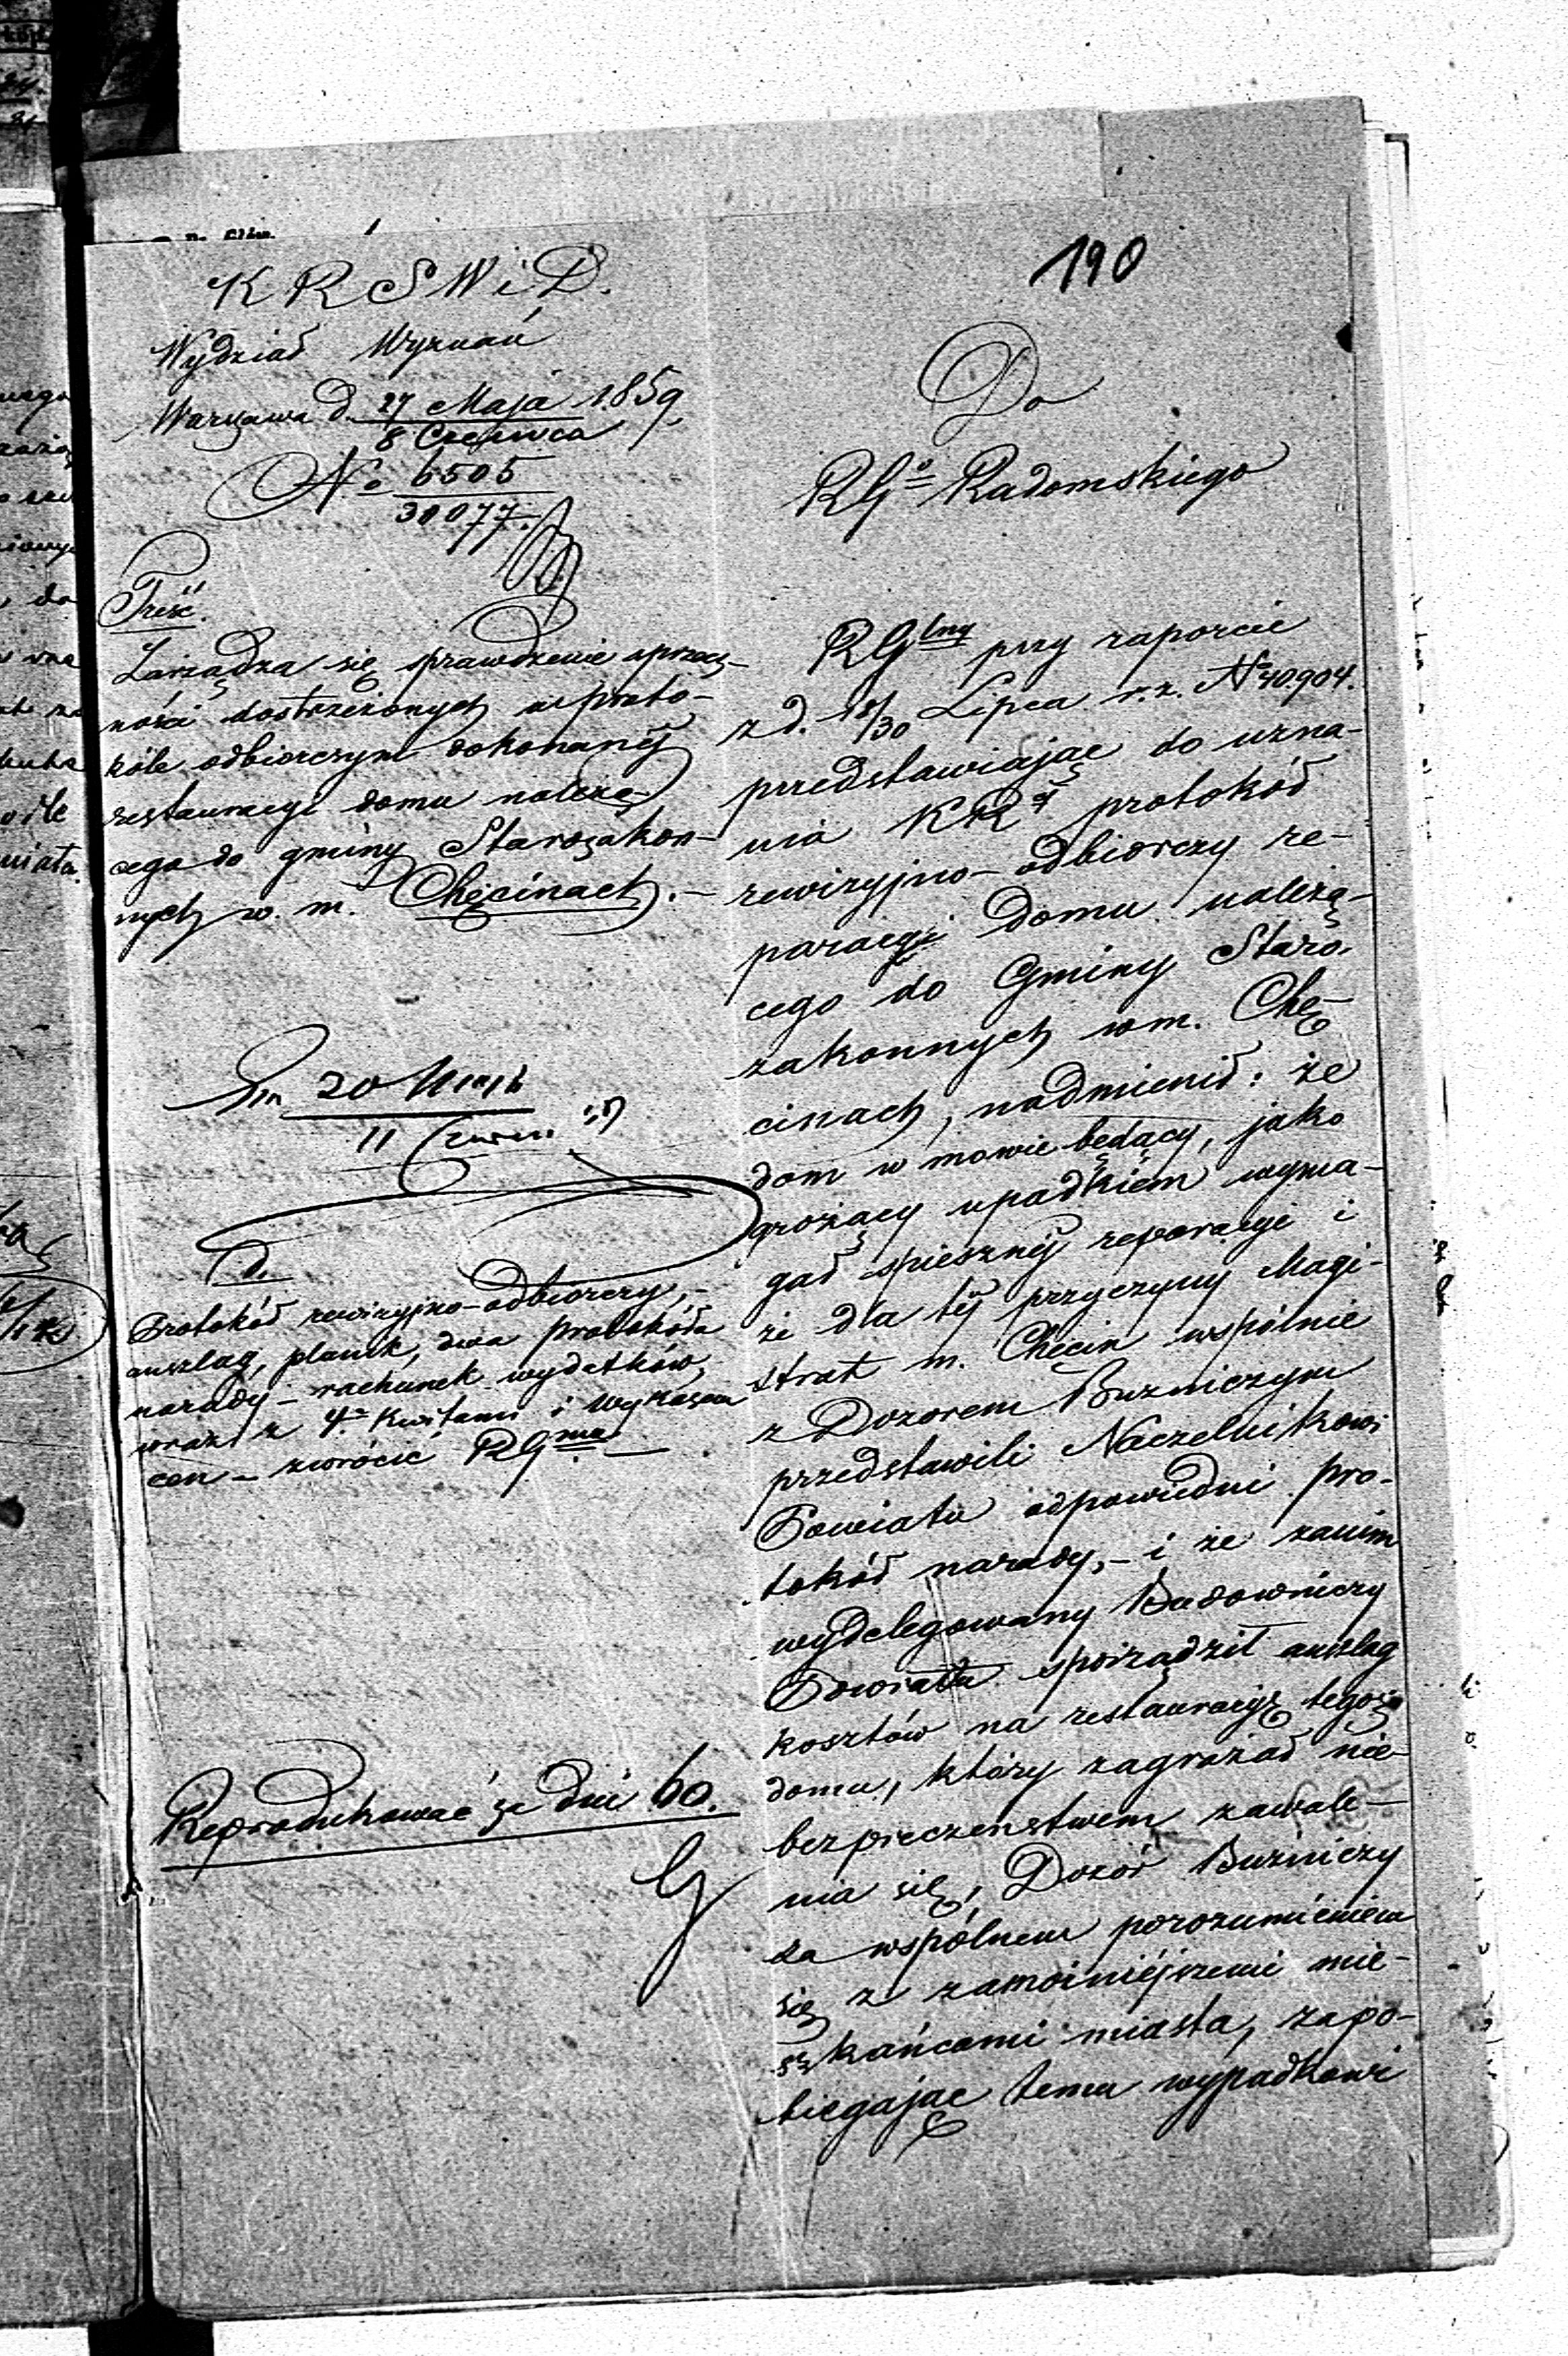 190
K R S W i D.
Wydział Wyznań
Warszawa d. 27 Maja 1859
8 Czerwca
No 6505
30077.
Treść.
Zarządza się sprawdzenie sprzecz-
ności dostrzeżonych w proto-
kóle odbiorczym dokonanéj
restauracyi domu należą-
cego do gminy Starozakon-
nych w. m. Chęcinach. –
20
11 Czerwca
d.
Protokół rewizyjno-odbiorczy,-
anszlag, planik, dwa protokóła
narady – rachunek wydatków,
wraz z 4. Kwitami i Wykazem
cen – zwrócić RGmu. –
Reprodukować za dni 60.
Do
RGo Radomskiego
RGlny przy raporcie
z d. 18/30 Lipca r. z. No 40904.
przedstawiając do uzna-
nia KRy protokół
rewizyjno-odbiorczy re-
paracyi domu należą-
cego do Gminy Staro-
zakonnych w m. Chę-
cinach, nadmienił: że
dom w mowie będący, jako
grożący upadkiem wyma-
gał spiesznéj reparacyi i
że dla téj przyczyny Magi-
strat m. Chęcin wspólnie
z Dozorem Bużniczym
przedstawili Naczelnikowi
Powiatu odpowiedni pro-
tokół narady, – i że zanim
wydelegowany Budowniczy
Powiatu sporządził anszlag
kosztów na restauracyę tegoż
domu, który zagrażał nie-
bezpieczeństwem zawale-
nia się, Dozór Bużniczy
za wspólnem porozumieniem
się z zamożniéjszemi mie-
szkańcami miasta, zapo-
biegając temu wypadkowi